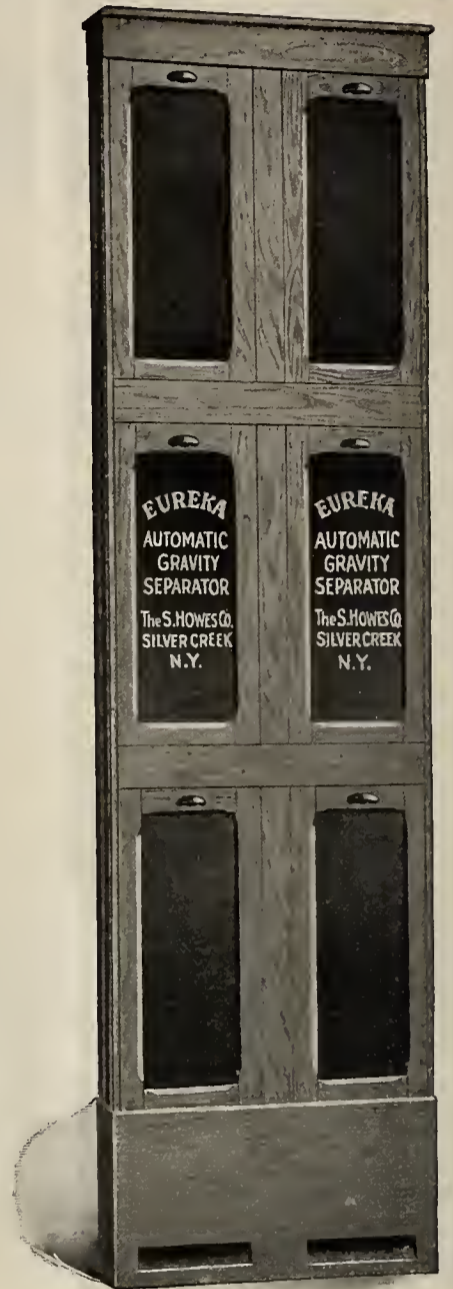 EUREKA
AUTOMATIC
GRAVITY
SEPARATOR
The S. HOWES Co.
SILVER CREEK
N.Y.
EUREKA
AUTOMATIC
GRAVITY
SEPARATOR
The S. HOWES Co
SILVER CREEK
N.Y.